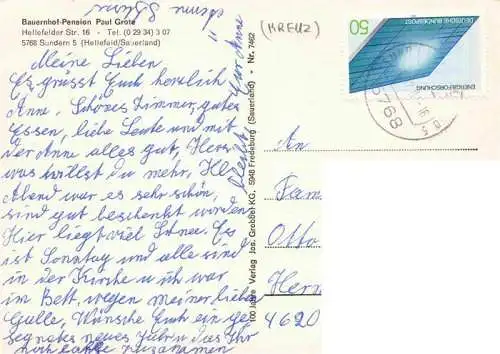 Bauernhof-Pension Paul Grote
Hellefelder Str. 16 • Tel. (0 29 34) 3 07
5768 Sundern 5 (Hellefeld/Sauerland)
Meine Lieben
Es grüsst Euch herzlich
Anne. Schönes Zimmer, gutes
Essen, liebe Leute und mit
der Anne alles gut, Herz
was willst du mehr, Hl.
Abend war es sehr schön,
sind gut beschenkt worden
Hier liegt viel Schnee. Es
ist Sonntag und alle sind
in der Kirche u ich war
im Bett, wegen meiner lieben
Galle, Wünsche Euch ein ge-
segnetes neues Jahr das Ihr
noch lange zusammen
Eure Anne
100 Jahre Verlag Jos. Grobbel KG, 5948 Fredeburg (Sauerland) • Nr. 7462
(KREUZ)
50
DEUTSCHE BUNDESPOST
ENERGIEFORSCHUNG
5768
An
Fam
Otto
Herm
4620